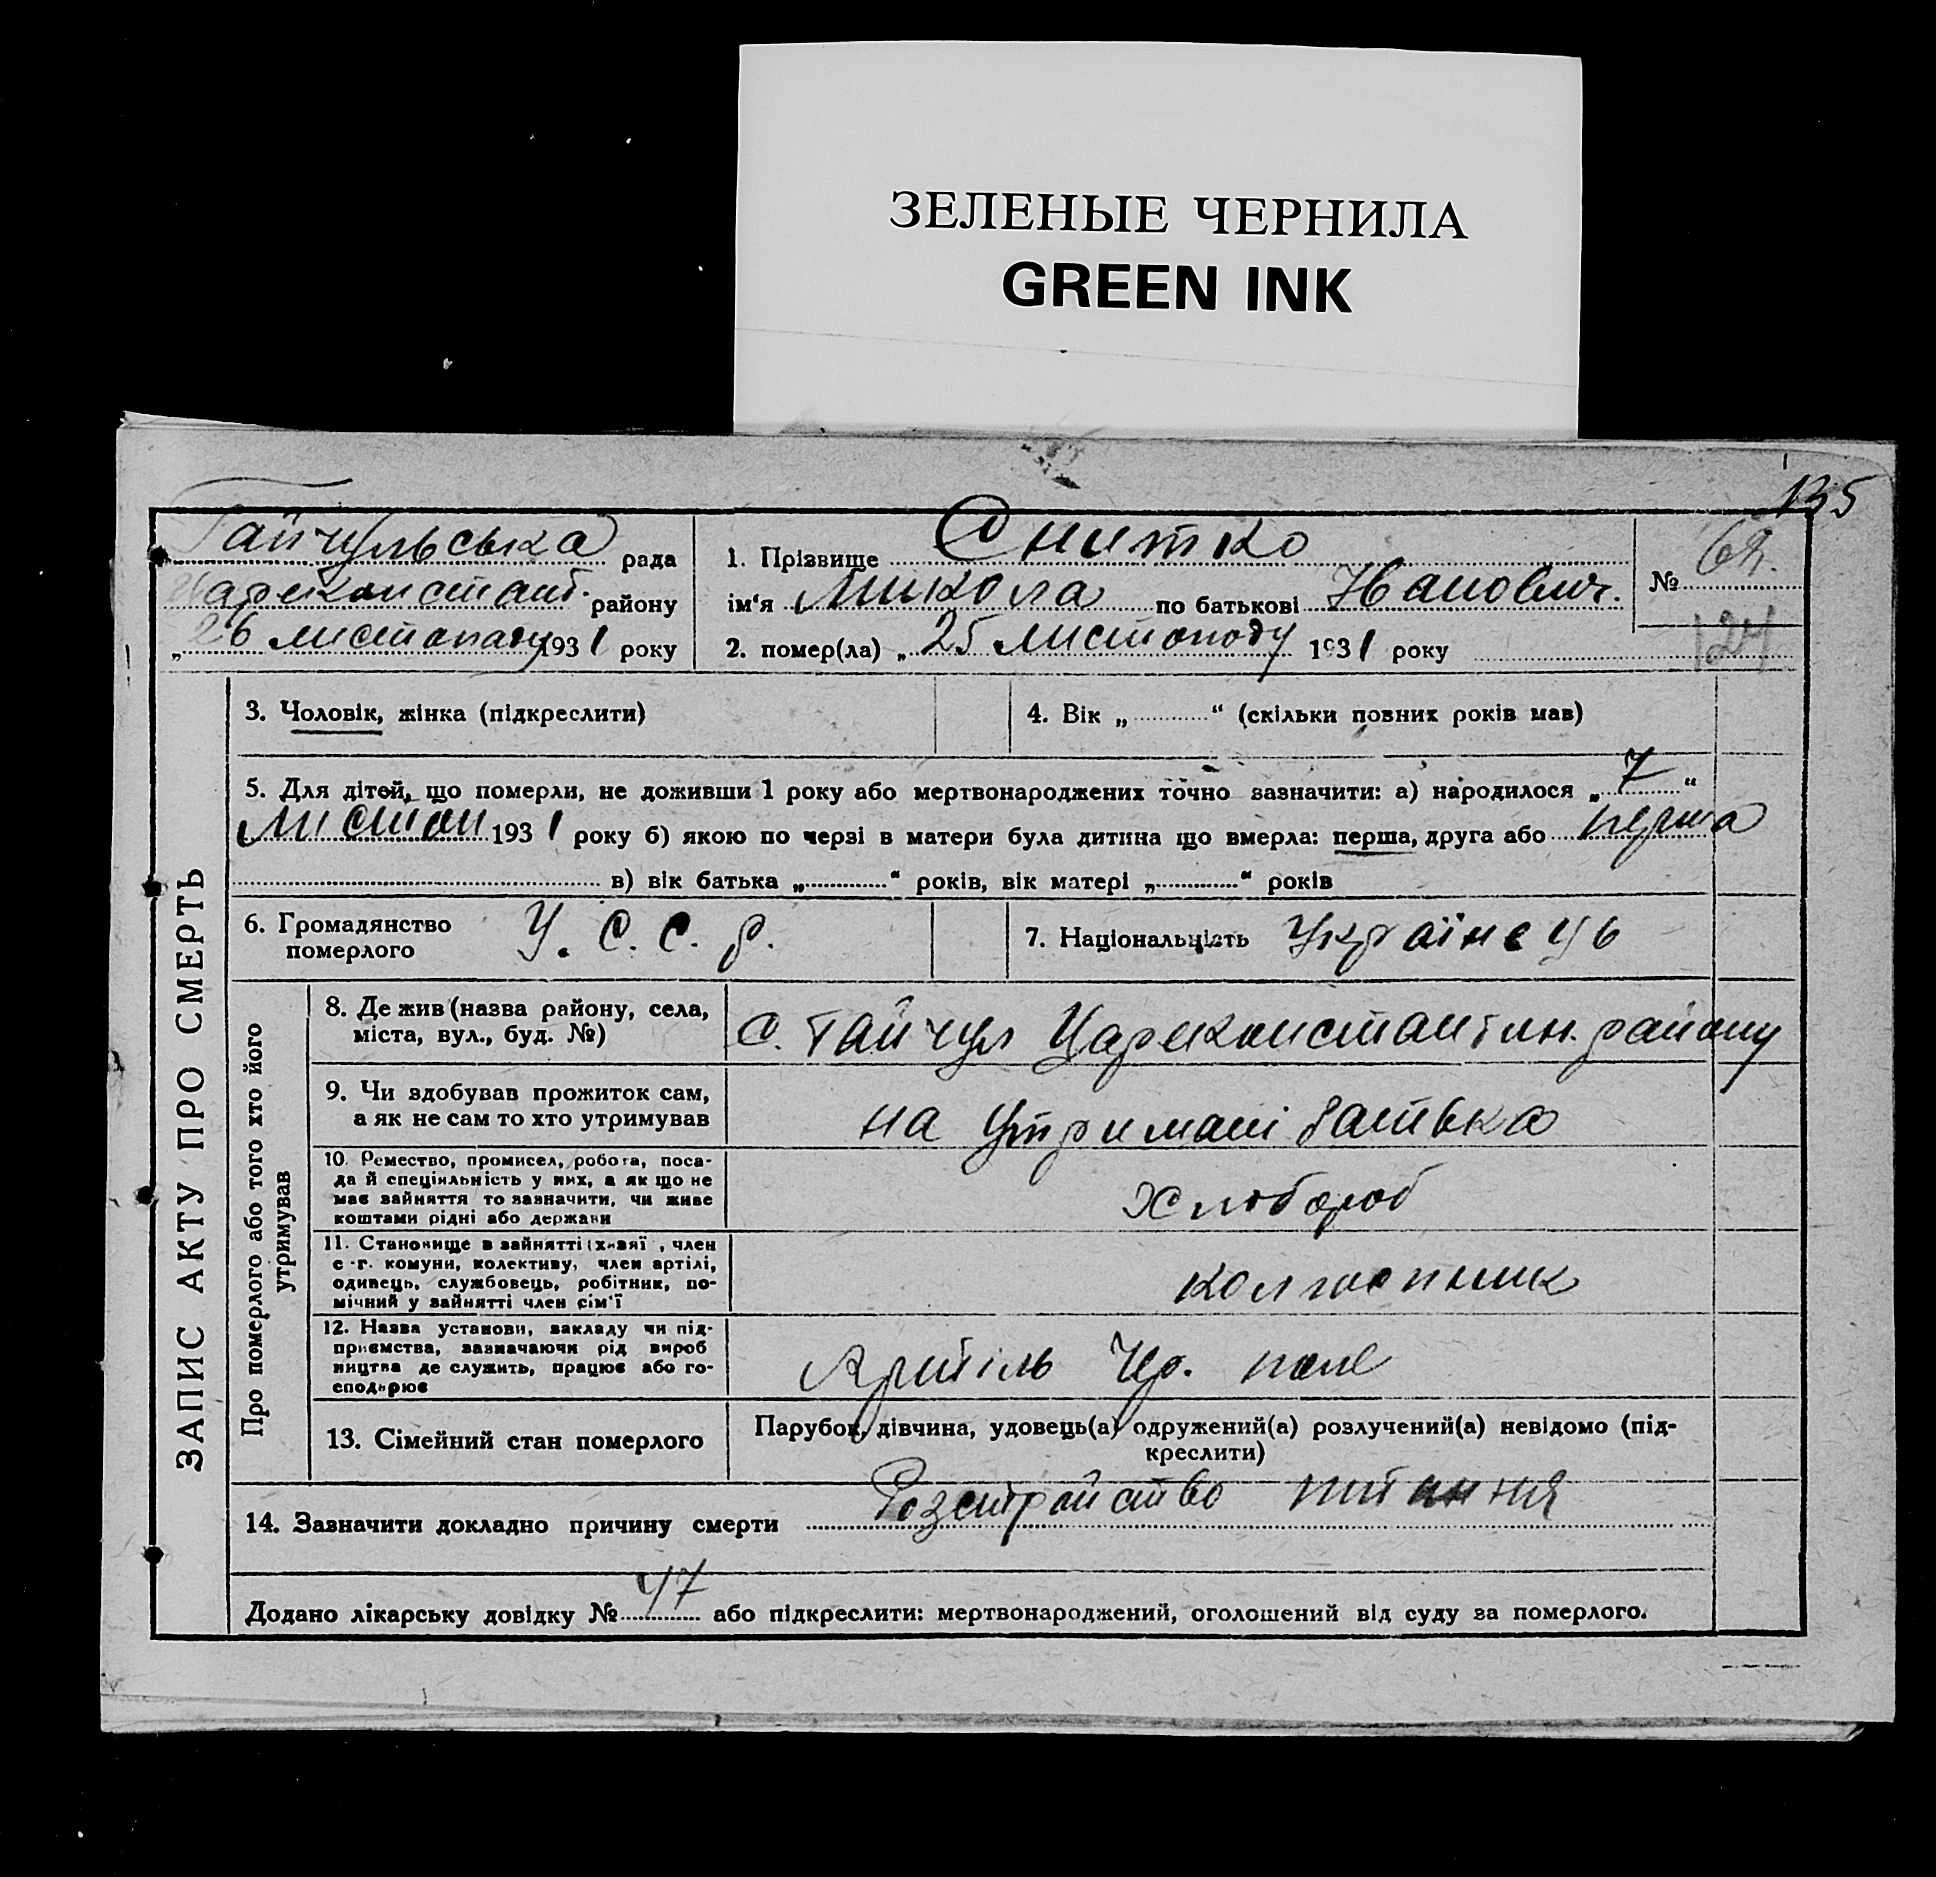 ЗЕЛЕНЫЕ ЧЕРНИЛА
GREEN INK
135
Гайчульська рада
Царекконстант. району
„26 листопаду 1931 року
1. Прізвище Снитко
ім‘я Микола по батькові Иванович.
2. помер(ла) „25 листоподу 1931 року
№
124
ЗАПИС АКТУ ПРО СМЕРТЬ
3. Чоловік, жінка (підкреслити)
4. Вік „ “ (скільки повних років мав)
5. Для дітей, що померли, не доживши 1 року або мертвонароджених точно зазначити: а) народилося „7“
листоп 1931 року б) якою по черзі в матери була дитина що вмерла: перша, друга або перша
в) вік батька „ “ років, вік матері „ “ років
6. Громадянство
померлого
У. С. С. Р.
7. Національність Українець
Про померлого або того хто його
утримував
8. Де жив (назва району, села,
міста, вул., буд. №)
с. Гайчул Царекконстантин. району
9. Чи здобував прожиток сам,
а як не сам то хто утримував
на утримані батька
10. Ремество, промисел, робота, поса-
да й спеціяльність у них, а як що не
має зайняття то зазначити, чи живе
коштами рідні або держави
Хлебороб
11. Становище в зайнятті (хазяї, член
с.-г. комуни, колективу, член артілі,
одинець, службовець, робітник, по-
мічний у зайнятті член сім‘ї
колгоспник
12. Назва установи, закладу чи під-
приємства, зазначаючи рід вироб
ництва де служить, працює або го-
сподарює
Артіль Чр. поле
13. Сімейний стан померлого
Парубок, дівчина, удовець(а) одружений(а) розлучений(а) невідомо (під-
креслити)
14. Зазначити докладно причину смерти Розстройство питання
Додано лікарську довідку № 47 або підкреслити: мертвонароджений, оголошений від суду за померлого.